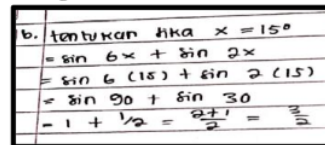 b. tentukan jika x = 15°
= sin 6x + sin 2x
= sin 6 (15) + sin 2 (15)
= sin 90 + sin 30
= 1 + 1/2 = 2+1/2 = 3/2